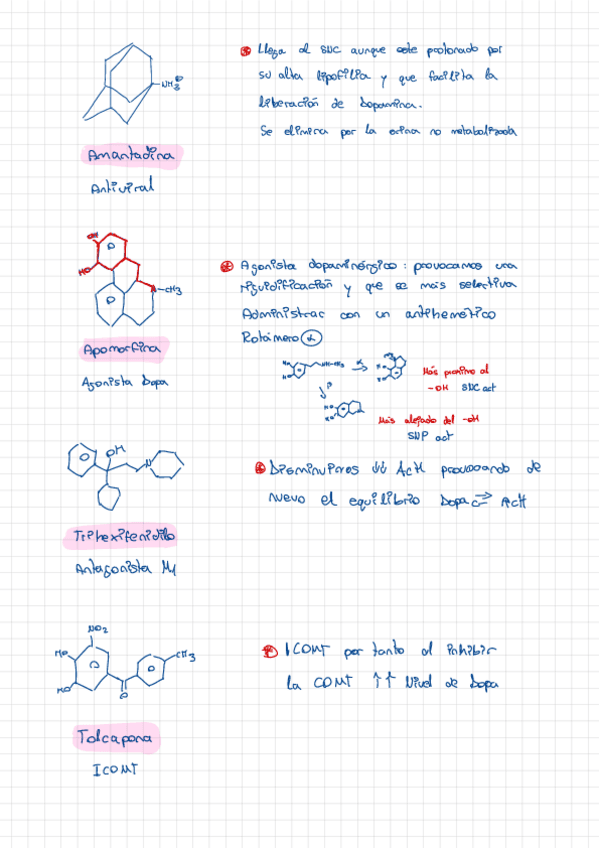 Llega al SNC aunque este protonado por
su alta lipofilia y que facilita la
liberación de Dopamina.
Se elimina por la orina no metabolizada
NH3
Amantadina
Antiviral
OH
HO
CH3
Apomorfina
Agonista Dopa
Agonista dopaminérgico: provocamos una
riguidificación y que se más selectiva
Administrar con un antihemético
Rotámero α
α
Más proximo al
-OH SNC act
β
Más alejado del -OH
SNP act
OH
N
Trihexifenidilo
Antagonista M1
Disminuimos ↓↓ AcH provocando de
nuevo el equilibrio Dopa ⇄ AcH
NO2
HO
HO
O
CH3
Tolcapona
ICOMT
ICOMT por tanto al inhibir
la COMT ↑↑ Nivel de Dopa